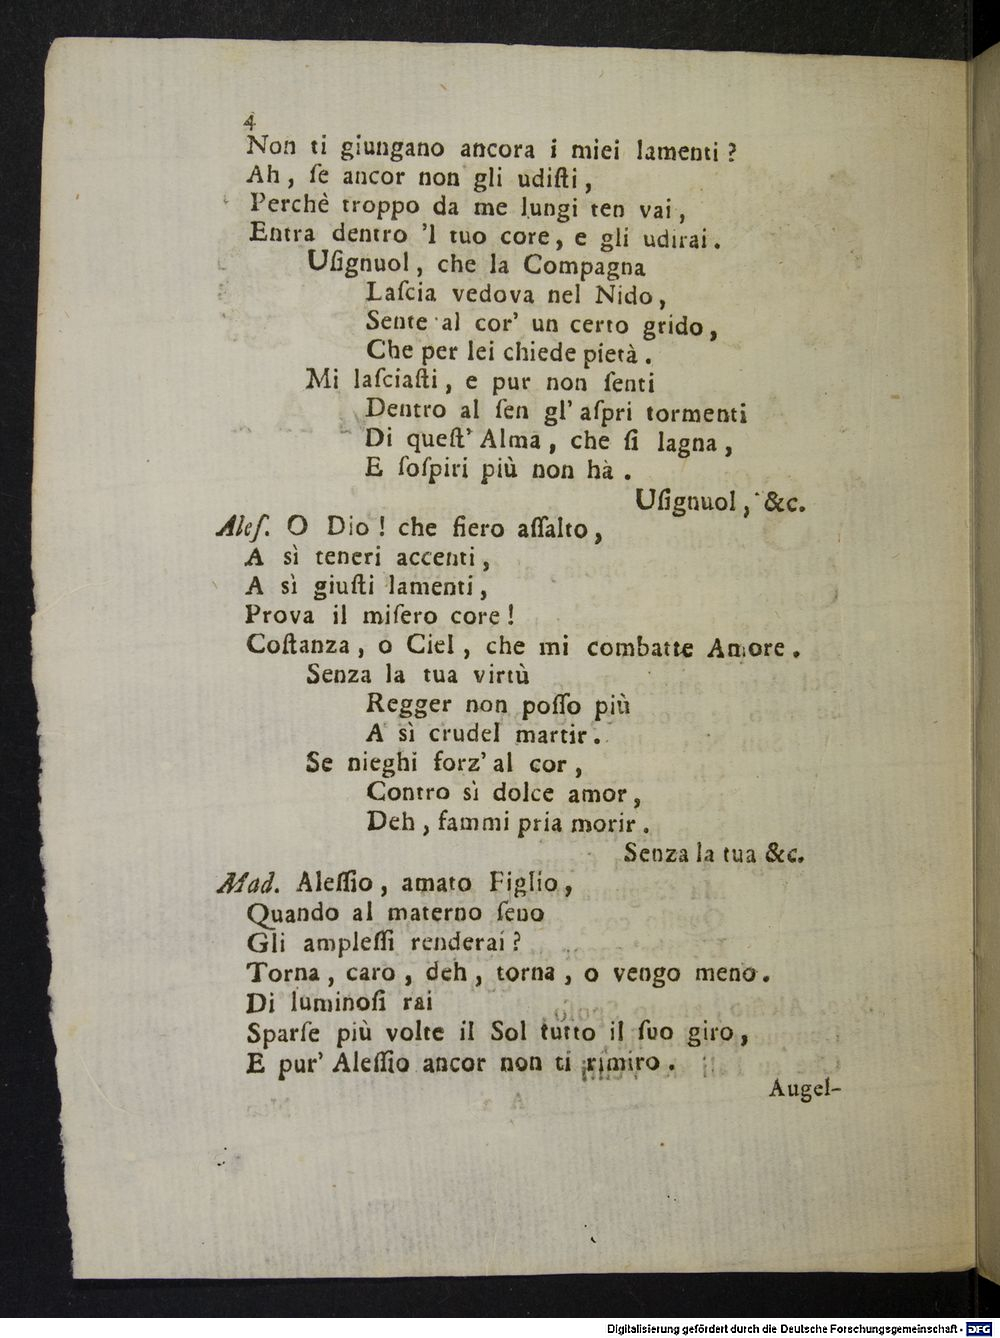 4
Non ti giungano ancora i miei lamenti ?
Ah , ſe ancor non gli udiſti ,
Perchè troppo da me lungi ten vai ,
Entra dentro 'l tuo core , e gli udirai .
Uſignuol , che la Compagna
Laſcia vedova nel Nido ,
Sente al cor' un certo grido ,
Che per lei chiede pietà .
Mi laſciaſti , e pur non ſenti
Dentro al ſen gl' aſpri tormenti
Di queſt' Alma , che ſi lagna ,
E ſoſpiri più non hà .
Uſignuol , &c.
Aleſ. O Dio ! che fiero aſſalto ,
A sì teneri accenti ,
A sì giuſti lamenti ,
Prova il miſero core !
Coſtanza , o Ciel , che mi combatte Amore .
Senza la tua virtù
Regger non poſſo più
A sì crudel martir .
Se nieghi forz' al cor ,
Contro sì dolce amor ,
Deh , fammi pria morir .
Senza la tua &c.
Mad. Aleſſio , amato Figlio ,
Quando al materno ſeno
Gli ampleſſi renderai ?
Torna , caro , deh , torna , o vengo meno .
Di luminoſi rai
Sparſe più volte il Sol tutto il ſuo giro ,
E pur' Aleſſio ancor non ti rimiro .
Augel-
Digitalisierung gefördert durch die Deutsche Forschungsgemeinschaft - DFG